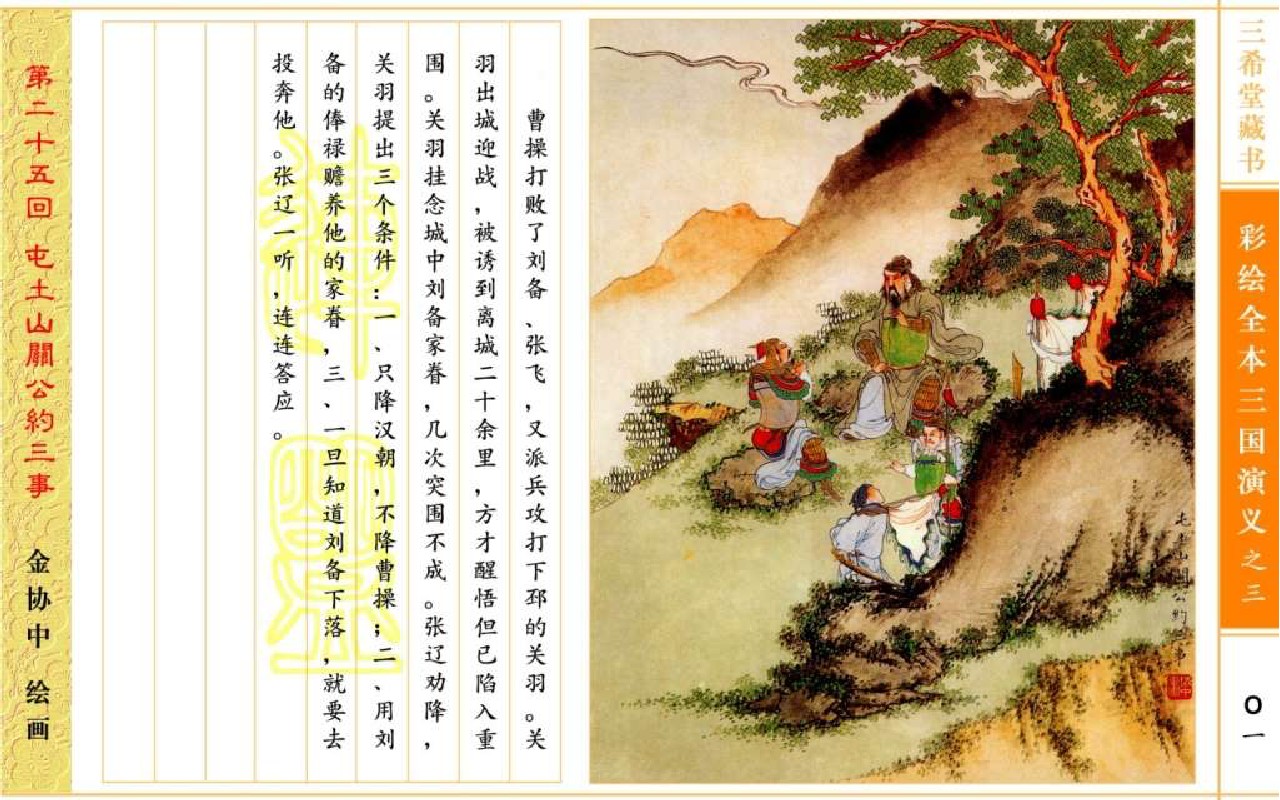 三希堂藏书
彩绘全本三国演义之三
〇一
屯土山關公約三事
曹操打败了刘备、张飞，又派兵攻打下邳的关羽。关
羽出城迎战，被诱到离城二十余里，方才醒悟但已陷入重
围。关羽挂念城中刘备家眷，几次突围不成。张辽劝降，
关羽提出三个条件：一、只降汉朝，不降曹操；二、用刘
备的俸禄赡养他的家眷，三、一旦知道刘备下落，就要去
投奔他。张辽一听，连连答应。
第二十五回 屯土山關公約三事 金协中 绘画